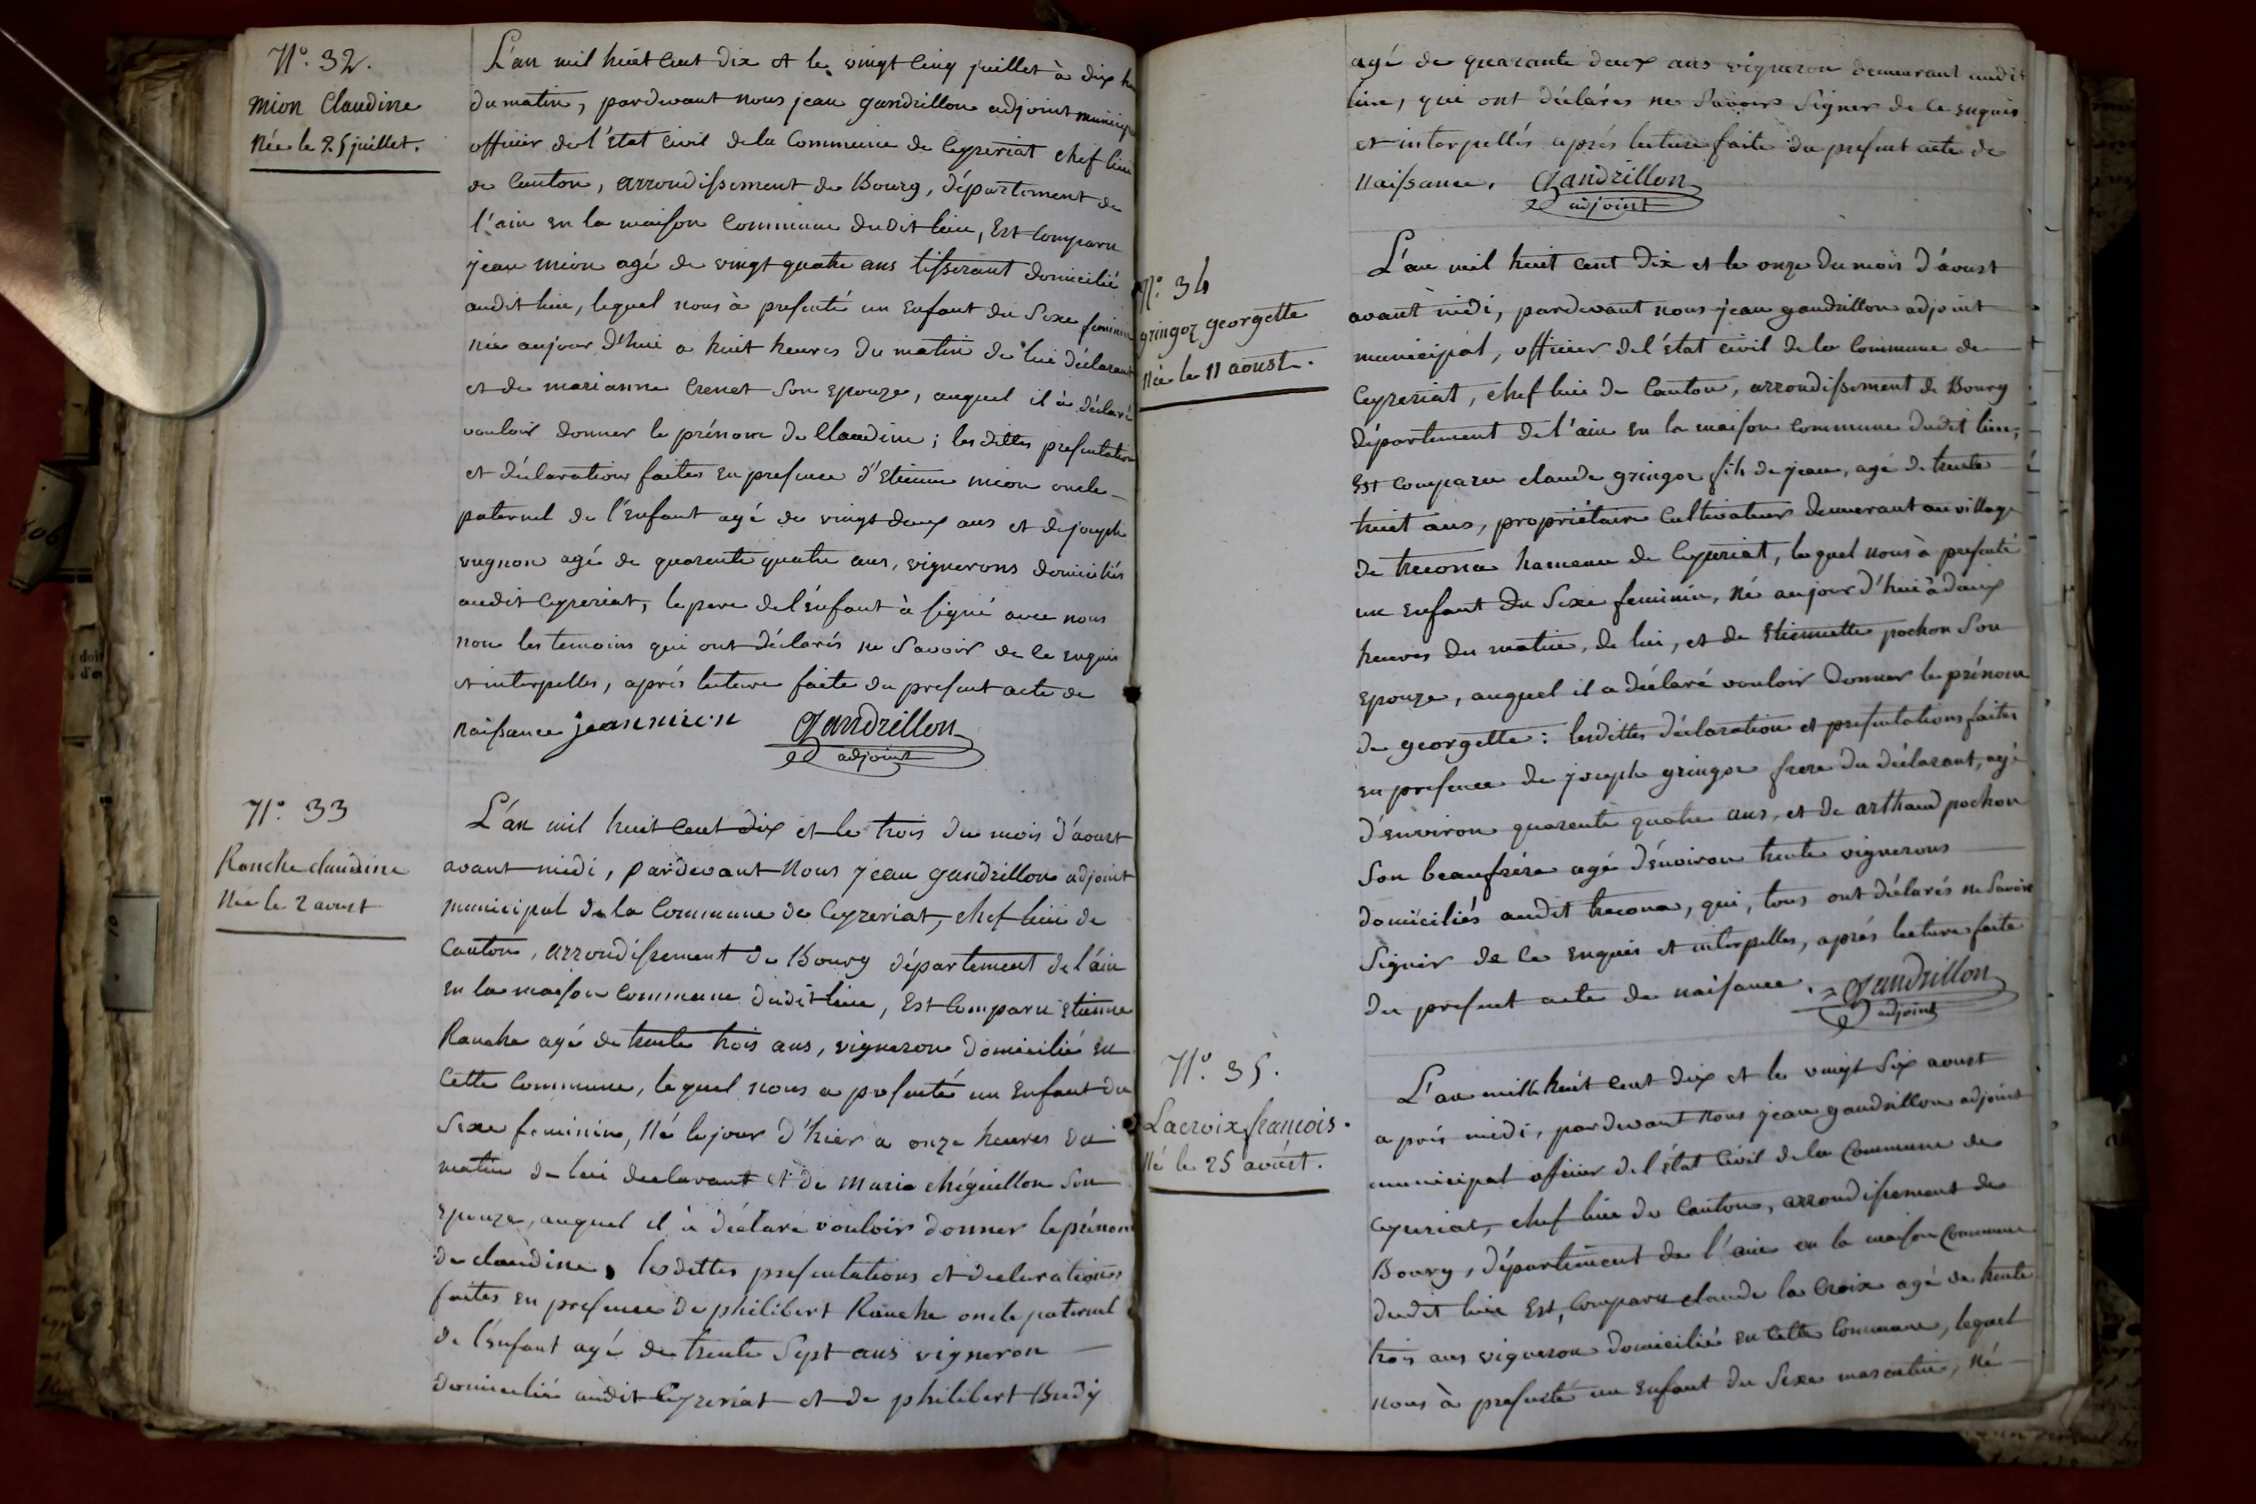 N.º 32.
mion Claudine
Née le 25 juillet.
L'an mil huit cent dix et le vingt cinq juillet à dix
du matin, pardevant nous jean gandrillon adjoint
officier de l'état civil de la Commune de Ceyzeriat chef lieu
de Canton, arrondissement de Bourg, département de
l'ain en la maison Commune dudit lieu, Est Comparu
jean mion agé de vingt quatre ans tisserant domicilié
audit lieu, lequel nous à presenté un Enfant du Sexe feminin
née aujour d'hui a huit heures du matin de lui déclarant
et de marianne Crenet Son Epouze, auquel il à déclaré
vouloir donner le prénom de Claudine; les dittes presentation
et déclaration faites en presence d'Etienne mion oncle
paternel de l'Enfant agé de vingt deux ans et de joseph
vugnon agé de quarente quatre ans, vignerons domiciliés
audit Ceyzeriat, le pere de l'énfant à signé avec nous
non les temoins qui ont déclarés ne Savoir de ce enquis
et interpelles, aprés lecture faite du present acte de
naissance jean mion Gandrillon
adjoint
N.º 33
Ranche claudine
Née le 2 aoust
L'an mil huit Cent dix et le trois du mois d'aoust
avant midi, pardevant Nous jean gandrillon adjoint
municipal de la Commune de Ceyzeriat, chef lieu de
Canton, arrondissement de Bourg département de l'ain
en la maison Commune dudit lieu, Est Comparu Etienne
Ranche agé de trente trois ans, vigneron domicilié en
Cette Commune, lequel nous a presenté un Enfant du
Sexe feminin, Né le jour d'hier a onze heures du
matin de lui declarant et de marie chéguillon Son
Epouze, auquel il à déclaré vouloir donner le prénom
de claudine, lesdittes presentations et declarations
faites en presence de philibert Ranche oncle paternel
de l'énfant agé de trente Sept ans vigneron
domicilié audit Ceyzeriat et de philibert Budy
agé de quarante deux ans vigneron demeurant audit
lieu, qui ont déclarés ne Savoir Signer de ce enquis
et interpellés aprés lecture faite du present acte de
Naissance. Gandrillon
adjoint
N.º 34
gringoz georgette
Née le 11 aoust.
L'an mil huit cent dix et le onze du mois d'áoust
avant midi, pardevant nous jean gandrillon adjoint
municipal, officier de l'état civil de la Commune de
Ceyzeriat, chef lieu de Canton, arrondissement de Bourg
département de l'ain en la maison commune dudit lieu,
Est comparu claude gringoz fils de jean, agé de trente
huit ans, propriétaire Cultivateur demeurant au village
de trecona hameau de Ceyzeriat, lequel nous à presenté
un Enfant du Sexe feminin, Né aujour d'hui à deux
heures du matin, de lui, et de Etiennette pochon Son
Epouze, auquel il a déclaré vouloir donner le prénom
de georgette: lesdittes déclaration et presentations faites
en presence de joseph gringoz frere du déclarant, agé
d'environ quarente quatre ans, et de arthaud pochon
Son beaufrére agé d'énviron trente vignerons
domiciliés audit trecona, qui, tous ont déclarés ne Savoir
Signer de ce enquis et interpelles, aprés lecture faite
du present acte de naissance. Gandrillon
adjoint
N.º 35.
Lacroix francois.
Né le 25 aoust.
L'an mille huit cent dix et le vingt Six aoust
aprés midi, pardevant Nous jean gandrillon adjoint
municipal officier de l'état Civil de la Commune de
Ceyzeriat, chef lieu de Canton, arrondissement de
Bourg, département de l'ain en la maison Commune
dudit lieu Est, Comparu claude la Croix agé de trente
trois ans vigneron domicilié en Cette Commune, lequel
nous à presenté un Enfant du Sexe masculin, né